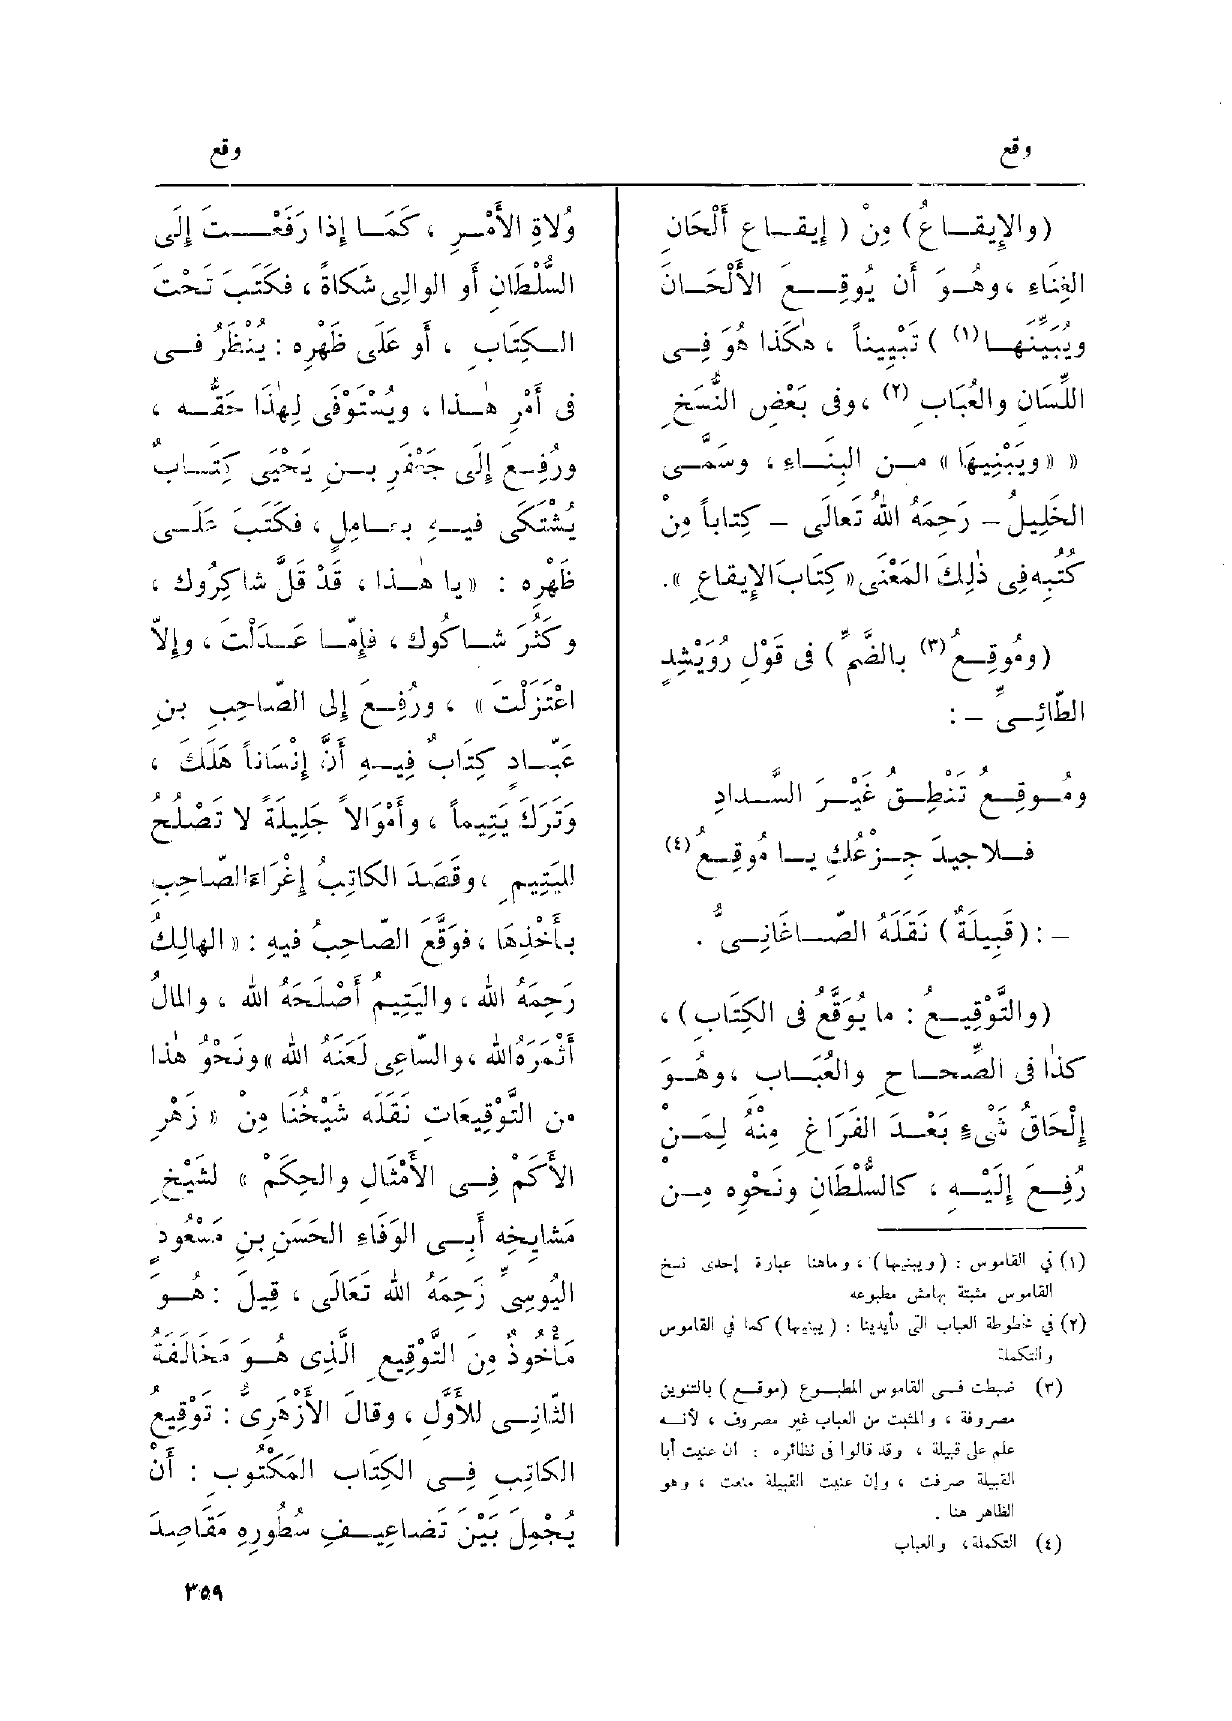 وقع
وقع
(والإِيقَاعُ) مِنْ ( إِيقَاعِ أَلْحَانِ
الغِنَاءِ ، وهُوَ أَن يُوقِعَ الأَلْحَانَ
ويُبَيِّنَهَا(١) ) تَبْيِيناً ، هٰكَذا هُوَ فِى
اللِّسَانِ والعُبَابِ (٢) ، وفى بَعْضِ النُّسَخِ
« «ويَبْنِيهَا» مِن البِنَاءِ ، وسَمَّى
الخَلِيلُ - رَحِمَهُ اللهُ تَعالَى - كِتاباً مِنْ
كُتُبِه فِى ذٰلِكَ المَعْنَى «كِتَابَ الإِيقاعِ ».
(ومُوقِعُ(٣) بالضَّمِّ) فى قَوْلِ رُوَيْشِدٍ
الطّائِىِّ - :
ومُوقِعُ تَنْطِقُ غَيْرَ السَّدادِ
فَلا جِيدَ جِزْعُكِ يا مُوقِعُ(٤)
- : (قَبِيلَةٌ) نَقَلَهُ الصّاغَانِىُّ .
(والتَّوْقِيعُ : ما يُوَقَّعُ فى الكِتَابِ) ،
كذا فى الصِّحاحِ والعُبَابِ ، وهُوَ
إِلْحَاقُ شَىْءٍ بَعْدَ الفَرَاغِ مِنْهُ لِمَنْ
رُفِعَ إِلَيْهِ ، كالسُّلْطَانِ ونَحْوِه مِنْ
(١) في القاموس : (ويبنيها) ، وماهنا عبارة إحدى نسخ
القاموس مثبتة بهامش مطبوعه
(٢) في مخطوطة العباب التى بأيدينا : (يبنيها) كما في القاموس
والتكملة
(٣) ضبطت فى القاموس المطبوع (موقع) بالتنوين
مصروفة ، والمثبت من العباب غير مصروف ، لأنه
علم على قبيلة ، وقد قالوا فى نظائره : ان عنيت أبا
القبيلة صرفت ، وإن عنيت القبيلة منعت ، وهو
الظاهر هنا .
(٤) التكملة، والعباب
وُلاةِ الأَمْرِ ، كَمَا إِذا رَفَعْتَ إِلَى
السُّلْطَانِ أَو الوالِى شَكَاةً ، فكَتَبَ تَحْتَ
الكِتَابِ ، أَو عَلَى ظَهْرِه : يُنْظَرُ فى
فى أَمْرِ هٰذا ، ويُسْتَوْفَى لِهٰذَا حَقُّه ،
ورُفِعَ إِلَى جَعْفَرِ بنِ يَحْيَى كِتَابٌ
يُشْتَكَى فيهِ بعامِلٍ ، فكَتَبَ عَلَى
ظَهْرِه : «يا هٰذا ، قَدْ قَلَّ شاكِرُوك ،
وكَثُرَ شاكُوك ، فإِمّا عَدَلْتَ ، وإِلاّ
اعْتَزَلْتَ» ، ورُفِعَ إِلى الصّاحِبِ بنِ
عَبّادٍ كِتَابٌ فِيهِ أَنَّ إِنْسَاناً هَلَكَ ،
وَتَرَكَ يَتِيماً ، وأَمْوَالاً جَلِيلَةً لا تَصْلُحُ
لليَتِيمِ ، وقَصَدَ الكاتِبُ إِغْرَاءَ الصّاحِبِ
بأَخْذِهَا ، فوَقَّعَ الصّاحِبُ فيهِ : «الهالِكُ
رَحِمَهُ الله ، واليَتِيمُ أَصْلَحَهُ الله ، والمَالُ
أَثْمَرَهُ الله ، والسّاعِى لَعَنَهُ الله »ونَحْوُ هٰذا
من التَّوْقِيعَاتِ نَقَلَه شَيْخُنَا مِنْ « زَهْرِ
الأَكَمْ فِى الأَمْثَالِ والحِكَمْ » لشَيْخِ
مَشايِخِه أَبِى الوَفَاءِ الحَسَنِ بنِ مَسْعُودٍ
اليُوسِىِّ رَحِمَهُ الله تَعَالَى ، قِيلَ : هُوَ
مَأْخُوذٌ مِنَ التَّوْقِيعِ الَّذِى هُوَ مُخَالَفَةُ
الثّانِى للأَوَّلِ ، وقالَ الأَزْهَرِىُّ : تَوْقِيعُ
الكاتِبِ فِى الكِتَابِ المَكْتُوبِ : أَنْ
يُجْمِلَ بَيْنَ تَضاعِيفِ سُطُورِهِ مَقَاصِدَ
٣٥٩